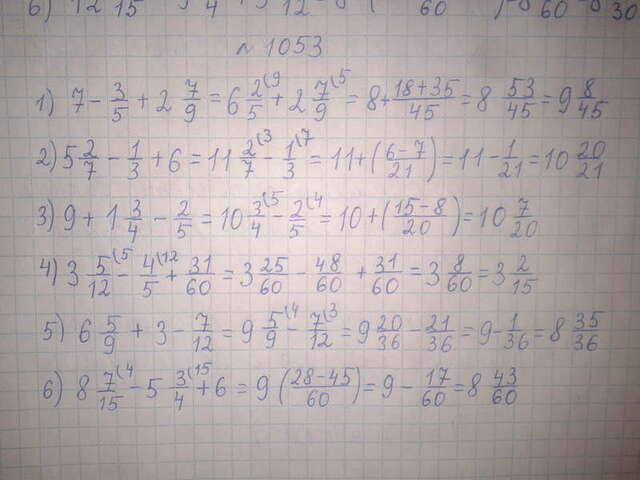 6) 12 15 4 12 60 60 30
№ 1053
1) 7 - 3/5 + 2 7/9 = 6 2/5 (9 + 2 7/9 (5 = 8 + (18+35)/45 = 8 53/45 = 9 8/45
2) 5 2/7 - 1/3 + 6 = 11 2/7 (3 - 1/3 (7 = 11 + ((6-7)/21) = 11 - 1/21 = 10 20/21
3) 9 + 1 3/4 - 2/5 = 10 3/4 (5 - 2/5 (4 = 10 + ((15-8)/20) = 10 7/20
4) 3 5/12 (5 - 4/5 (12 + 31/60 = 3 25/60 - 48/60 + 31/60 = 3 8/60 = 3 2/15
5) 6 5/9 + 3 - 7/12 = 9 5/9 (4 - 7/12 (3 = 9 20/36 - 21/36 = 9 - 1/36 = 8 35/36
6) 8 7/15 (4 - 5 3/4 (15 + 6 = 9 ((28-45)/60) = 9 - 17/60 = 8 43/60